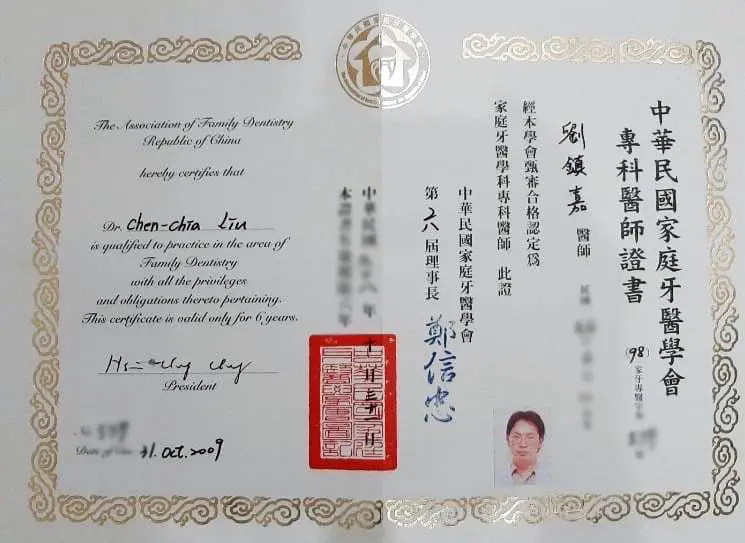 The Association of Family Dentistry
Republic of China
hereby certifies that
Dr. Chen-chia Liu
is qualified to practice in the area of
Family Dentistry
with all the privileges
and obligations thereto pertaining.
This certificate is valid only for 6 years.
President
31. Oct. 2009
中華民國家庭牙醫學會
專科醫師證書
(98)家牙專醫字
劉鎮嘉 醫師 民國
經本學會甄審合格認定為
家庭牙醫學科專科醫師 此證
中華民國家庭牙醫學會
第六屆理事長 鄭信忠
中華民國 九十八年
十月三十一日